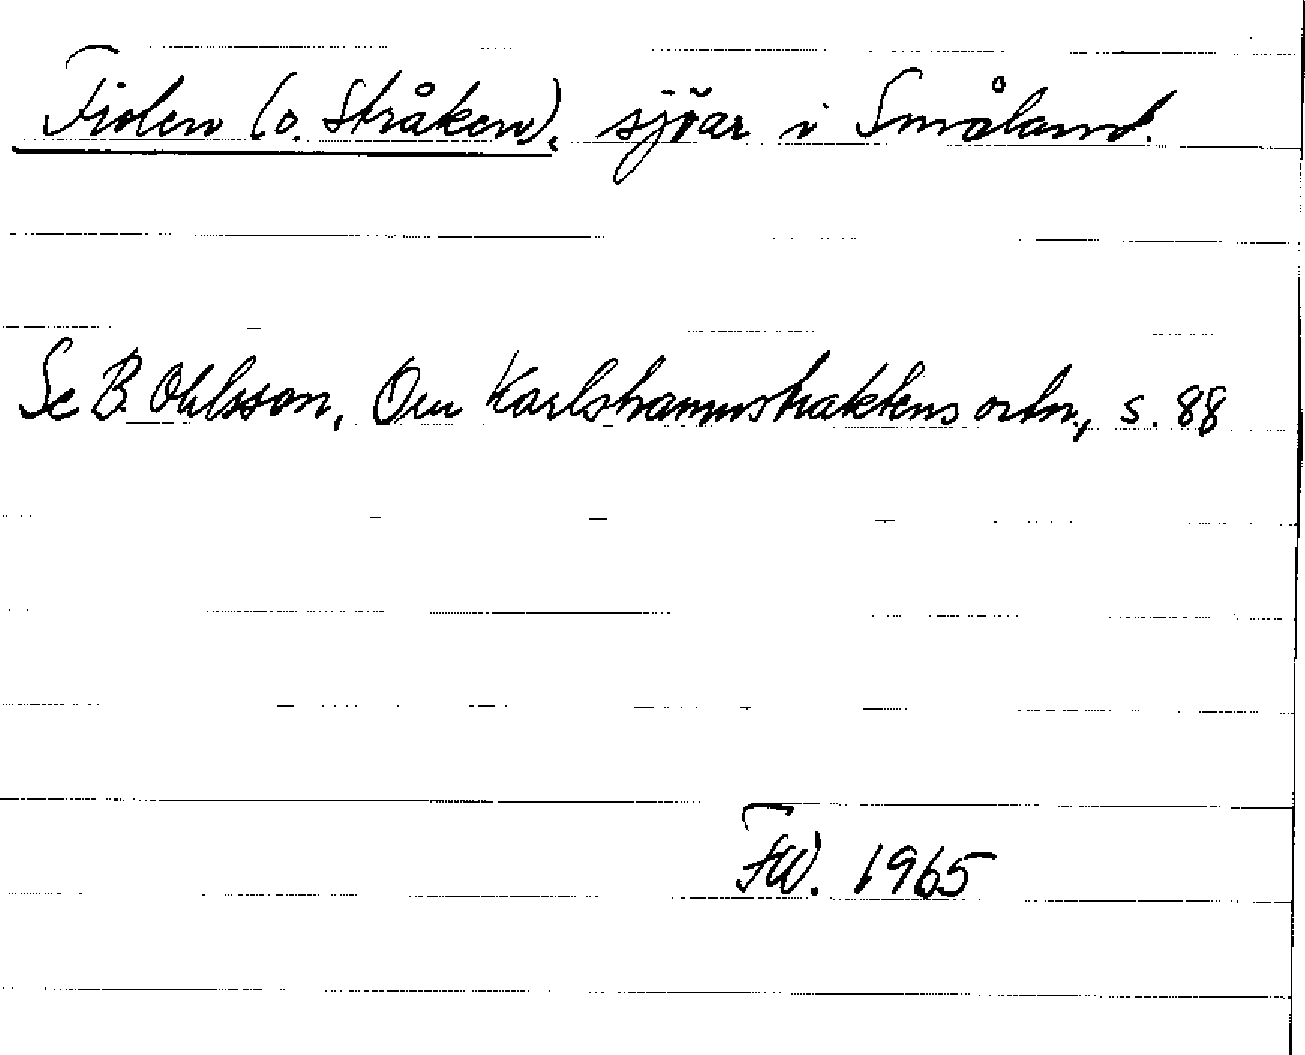 Fiolen (o. Stråken), sjöar i Småland.
Se B. Ohlsson, Om Karlshamnstraktens ortn., s. 88
FW. 1965